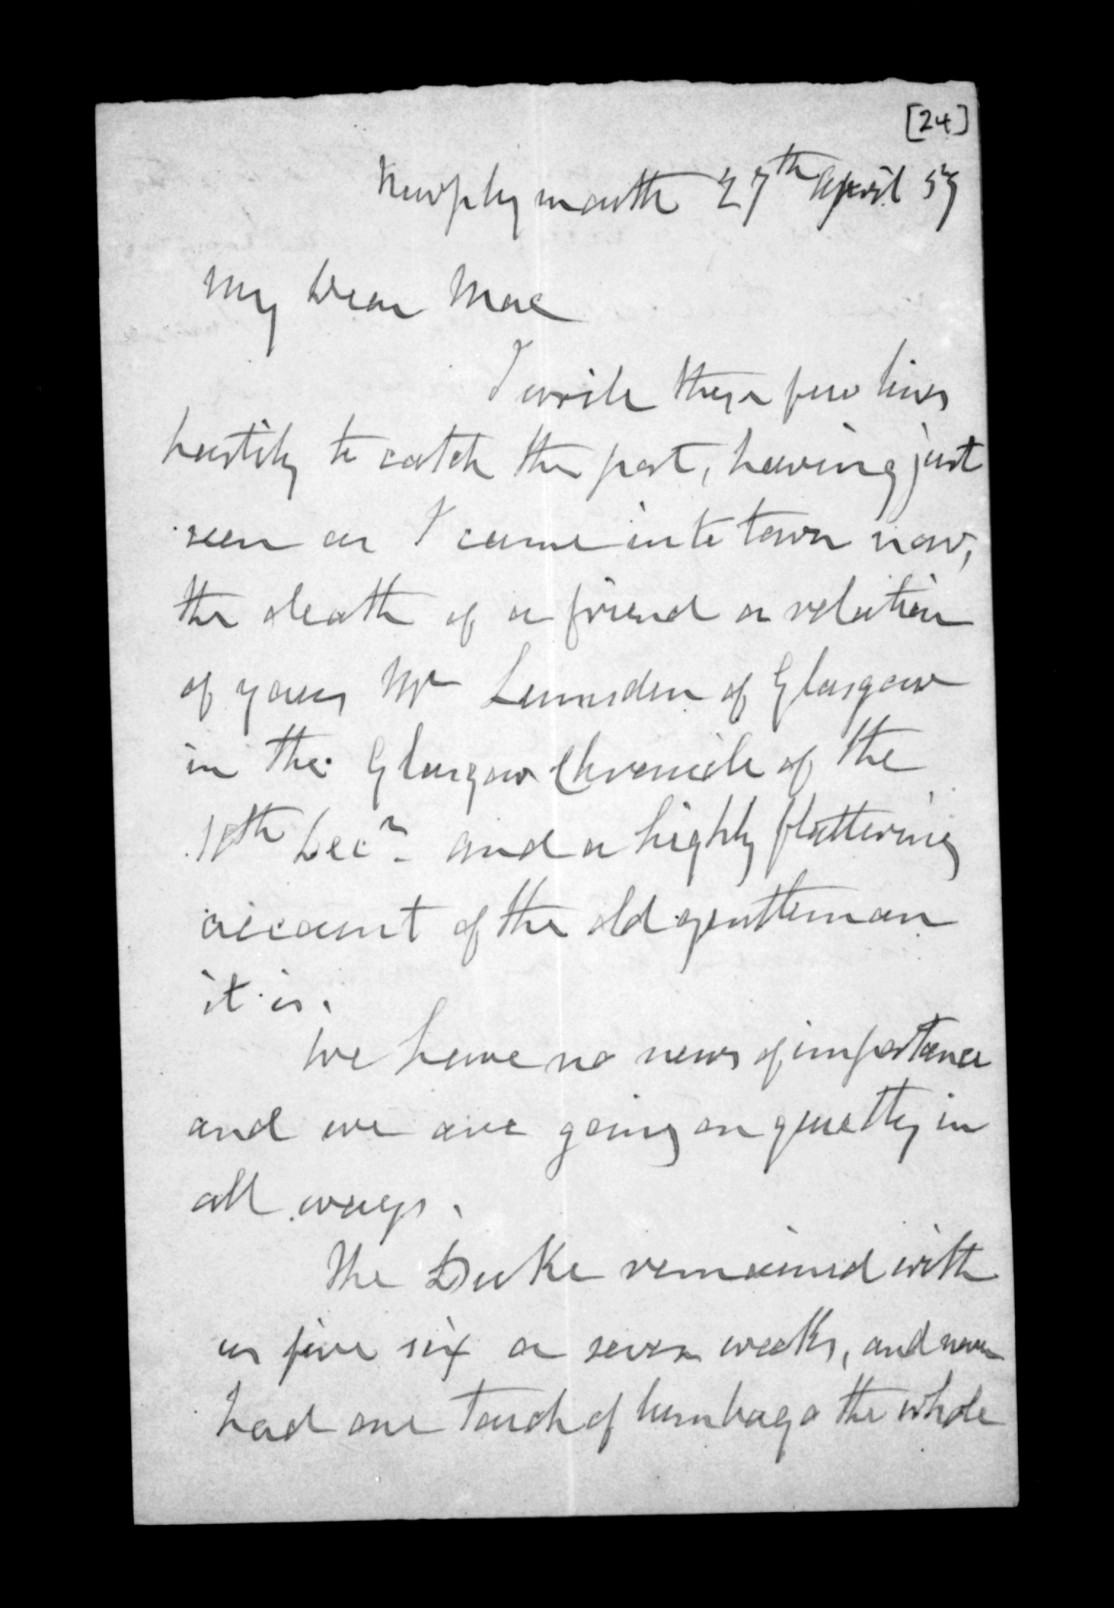 [24]
Newplymouth 27th April 57
My Dear Mac
I write these few lines
hastily to catch the post, having just
seen as I came into town now,
the death of a friend or relation
of yours Mr Lumsden of Glasgow
in the Glasgow Chronicle of the
Decr. and a highly flattering
account of the old gentleman
it is.
We have no news of importance
and we are going on quietly in
all ways.
The Duke remained with
us five six or seven weeks, and never
had one touch of lumbago the whole